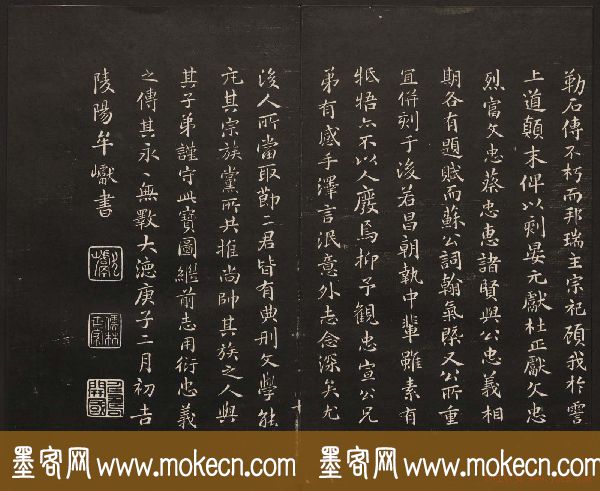 勒石傳不朽而邦瑞主宗祀碩我於霅
上道顛末俾以刻晏元獻杜正獻文忠
烈富文忠蔡忠惠諸賢與公忠義相
期各有題賦而蘇公詞翰氣槩又公所重
宜併刻于後若昌朝執中輩雖素有
牴牾亦不以人廢焉抑予觀忠宣公兄
弟有感手澤言泯意外志念深矣尤
後人所當取節二君皆有典刑文學能
庇其宗族黨所共推尚帥其族之人與
其子弟謹守此寶圖維前志用衍忠義
之傳其永永無斁大德庚子二月初吉
陵陽牟巘書
墨客网 www.mokecn.com 墨客网 www.mokecn.com